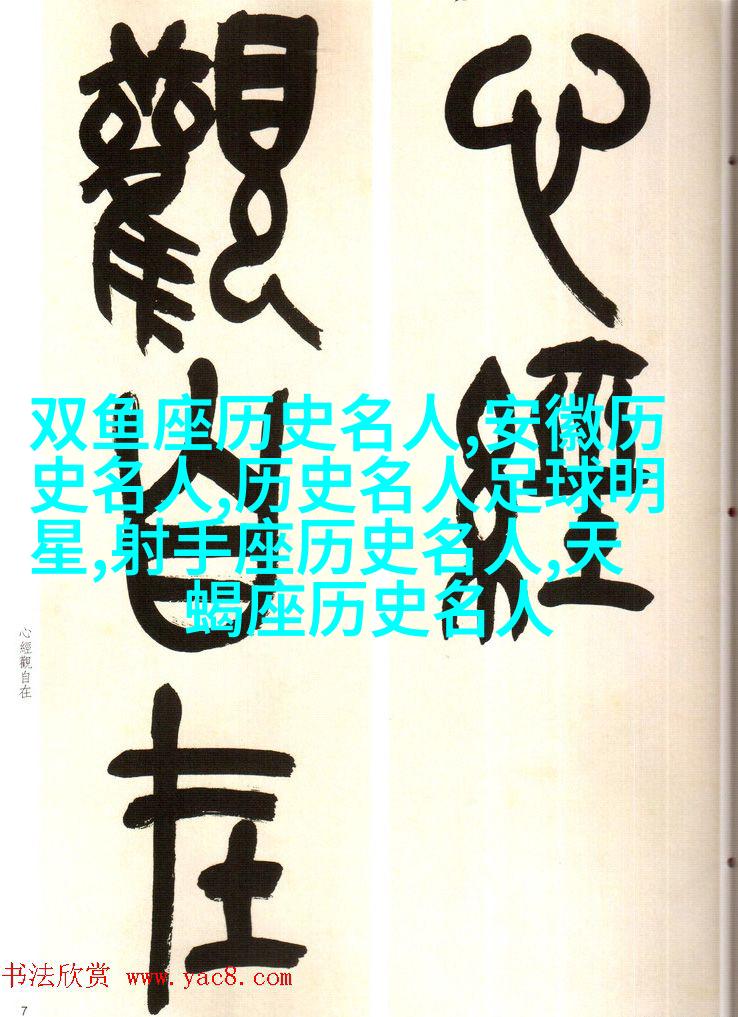 心經
觀自在
双鱼座历史名人,安徽历
史名人,历史名人足球明
星,射手座历史名人,天
蝎座历史名人
心經觀自在
书法欣赏 www.yac8.com
7